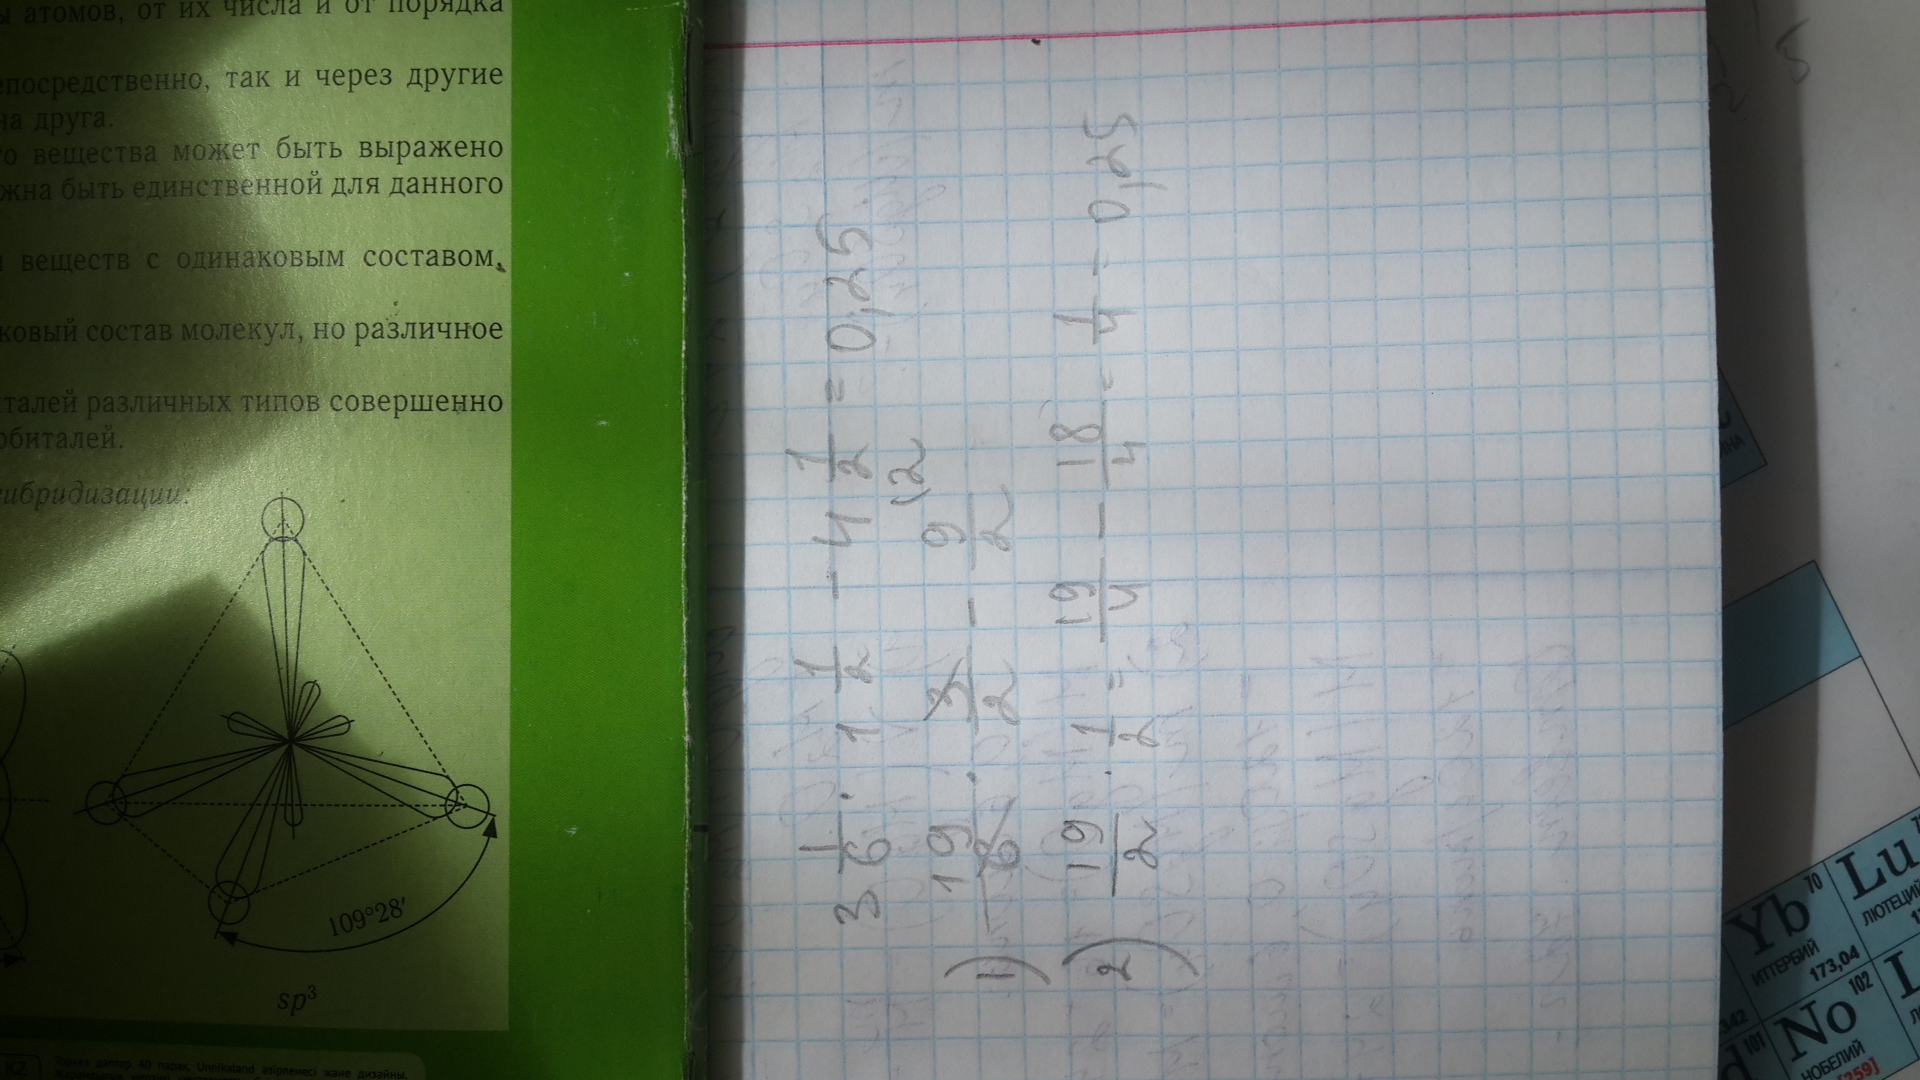 ы атомов, от их числа и от порядка
епосредственно, так и через другие
на друга.
го вещества может быть выражено
жна быть единственной для данного
и веществ с одинаковым составом,
ковый состав молекул, но различное
италей различных типов совершенно
рбиталей.
гибридизации:
109°28′
sp³
KZ
3 1/6 · 1 1/2 - 4 1/2 = 0,25
1) 19/6 · 3/2 - 9/2 (2
2) 19/2 · 1/2 = 19/4 - 18/4 = 1/4 = 0,25
70
Yb
ИТТЕРБИЙ
173,04
Lu
ЛЮТЕЦИЙ
101
102
No
НОБЕЛИЙ
[259]